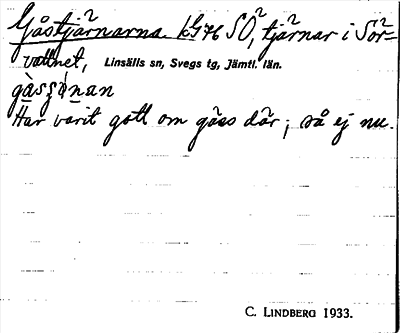 Gåstjärnarna. SO, tjärnar i Sör-
vattnet, Linsälls sn, Svegs tg, Jämtl. län.
Har varit gott om gäss där; så ej nu.
C. LINDBERG 1933.